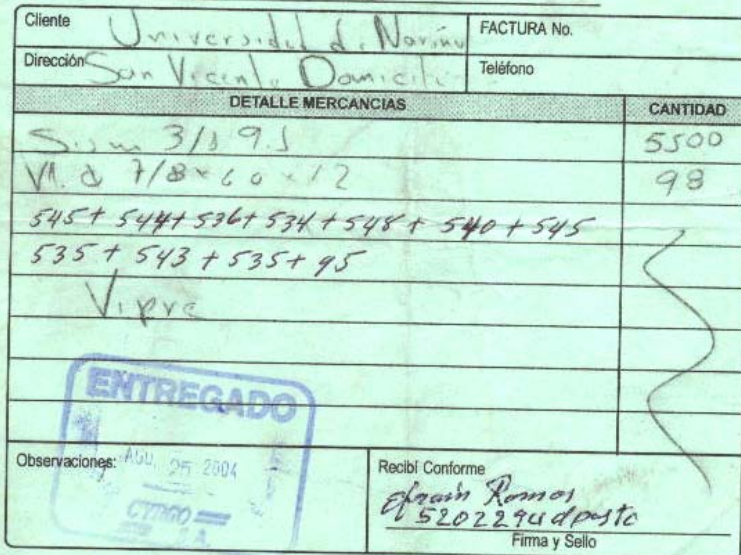 Cliente Universidad de Nariño FACTURA No.
Dirección San Vicente Domicili Teléfono
DETALLE MERCANCIAS CANTIDAD
3/8 9.5 5500
7/8 x 60 x 12 98
545 + 544 + 536 + 534 + 548 + 540 + 545
535 + 543 + 535 + 95
ENTREGADO
Observaciones: AGO. 25 2004 Recibí Conforme
Efrain Ramos
S.A.
Firma y Sello